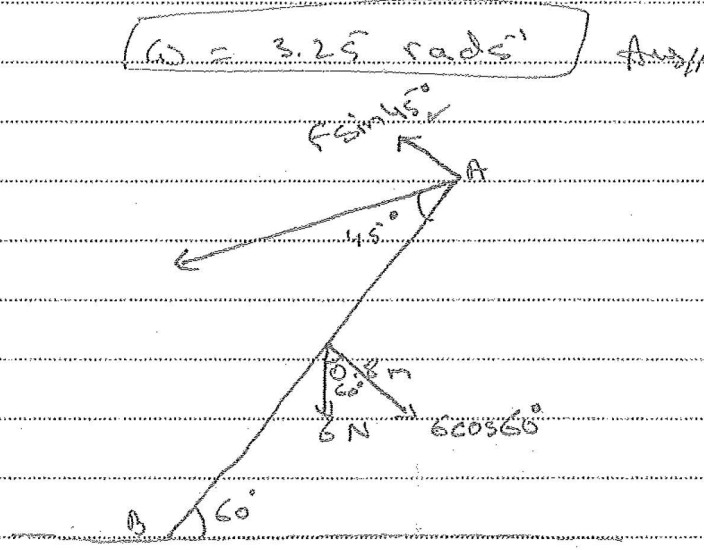 ω = 3.25 rads⁻¹ Ans//
F sin45°
A
45°
0.8 m
60°
6 N 6cos60°
B 60°